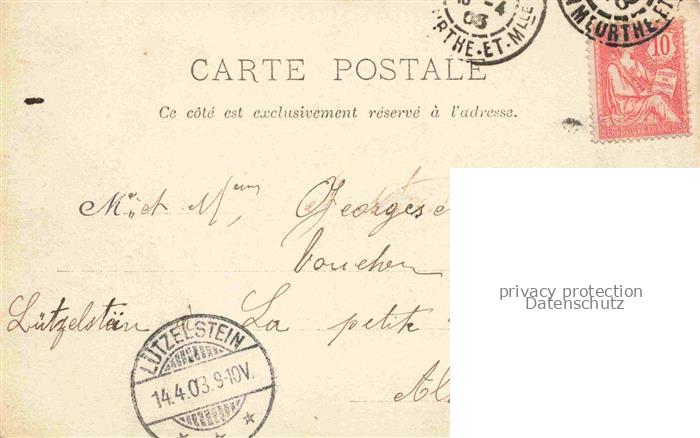 13 -4
03
RTHE-ET-Mlle
MEURTHE-ET-
10
CARTE POSTALE
Ce côté est exclusivement réservé à l'adresse.
Mr et Mme Georges
Voucher
privacy protection
Datenschutz
Lützelstein La petite
LÜTZELSTEIN
14.4.03.9-10V.
Al